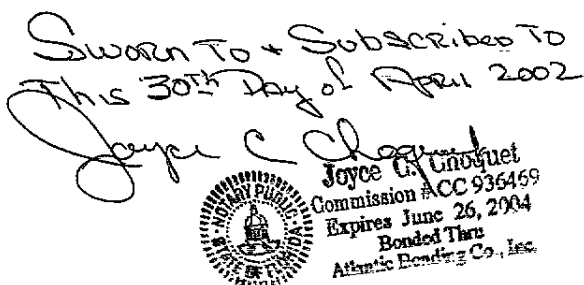 Sworn To + Subscribed To
This 30th Day of April 2002
Joyce C Choquet
Joyce C. Choquet
Commission #CC 936469
Expires June 26, 2004
Bonded Thru
Atlantic Bonding Co., Inc.
NOTARY PUBLIC
STATE OF FLORIDA